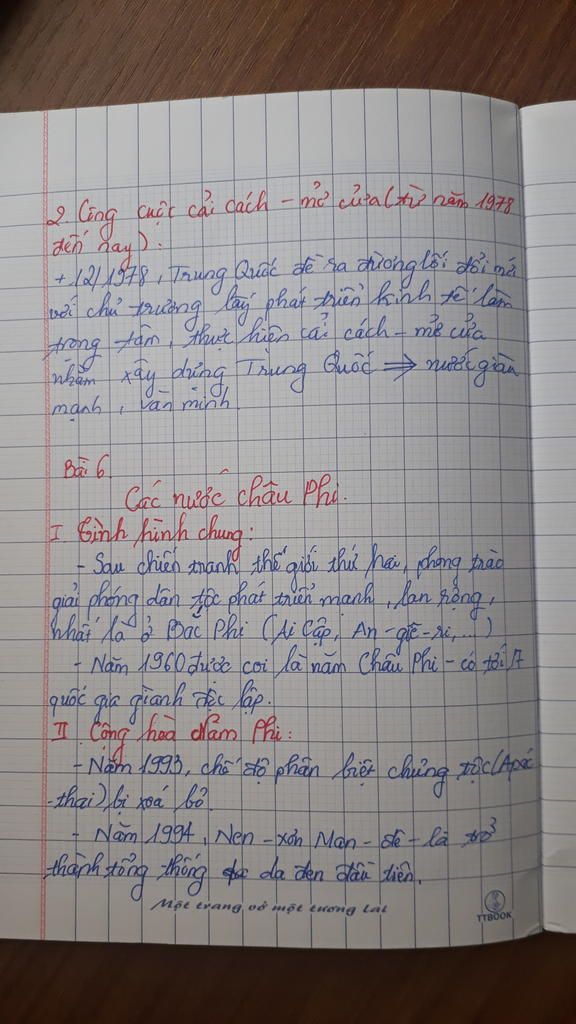 2. Công cuộc cải cách – mở cửa (từ năm 1978
đến nay):
+ 12/1978, Trung Quốc đề ra đường lối đổi mới
với chủ trương lấy phát triển kinh tế làm
trọng tâm, thực hiện cải cách – mở cửa
nhằm xây dựng Trung Quốc ⇒ nước giàu
mạnh, văn minh.
Bài 6
Các nước châu Phi.
I Tình hình chung:
- Sau chiến tranh thế giới thứ hai, phong trào
giải phóng dân tộc phát triển mạnh, lan rộng,
nhất là ở Bắc Phi (Ai Cập, An-giê-ri,...)
- Năm 1960 được coi là năm Châu Phi - có tới 17
quốc gia giành độc lập.
II Cộng hoà Nam Phi:
- Năm 1993, chế độ phân biệt chủng tộc (Apác
-thai) bị xoá bỏ.
- Năm 1994, Nen-xơn Man-đê-la trở
thành tổng thống da đen đầu tiên.
Một trang vở một tương lai
TTBOOK